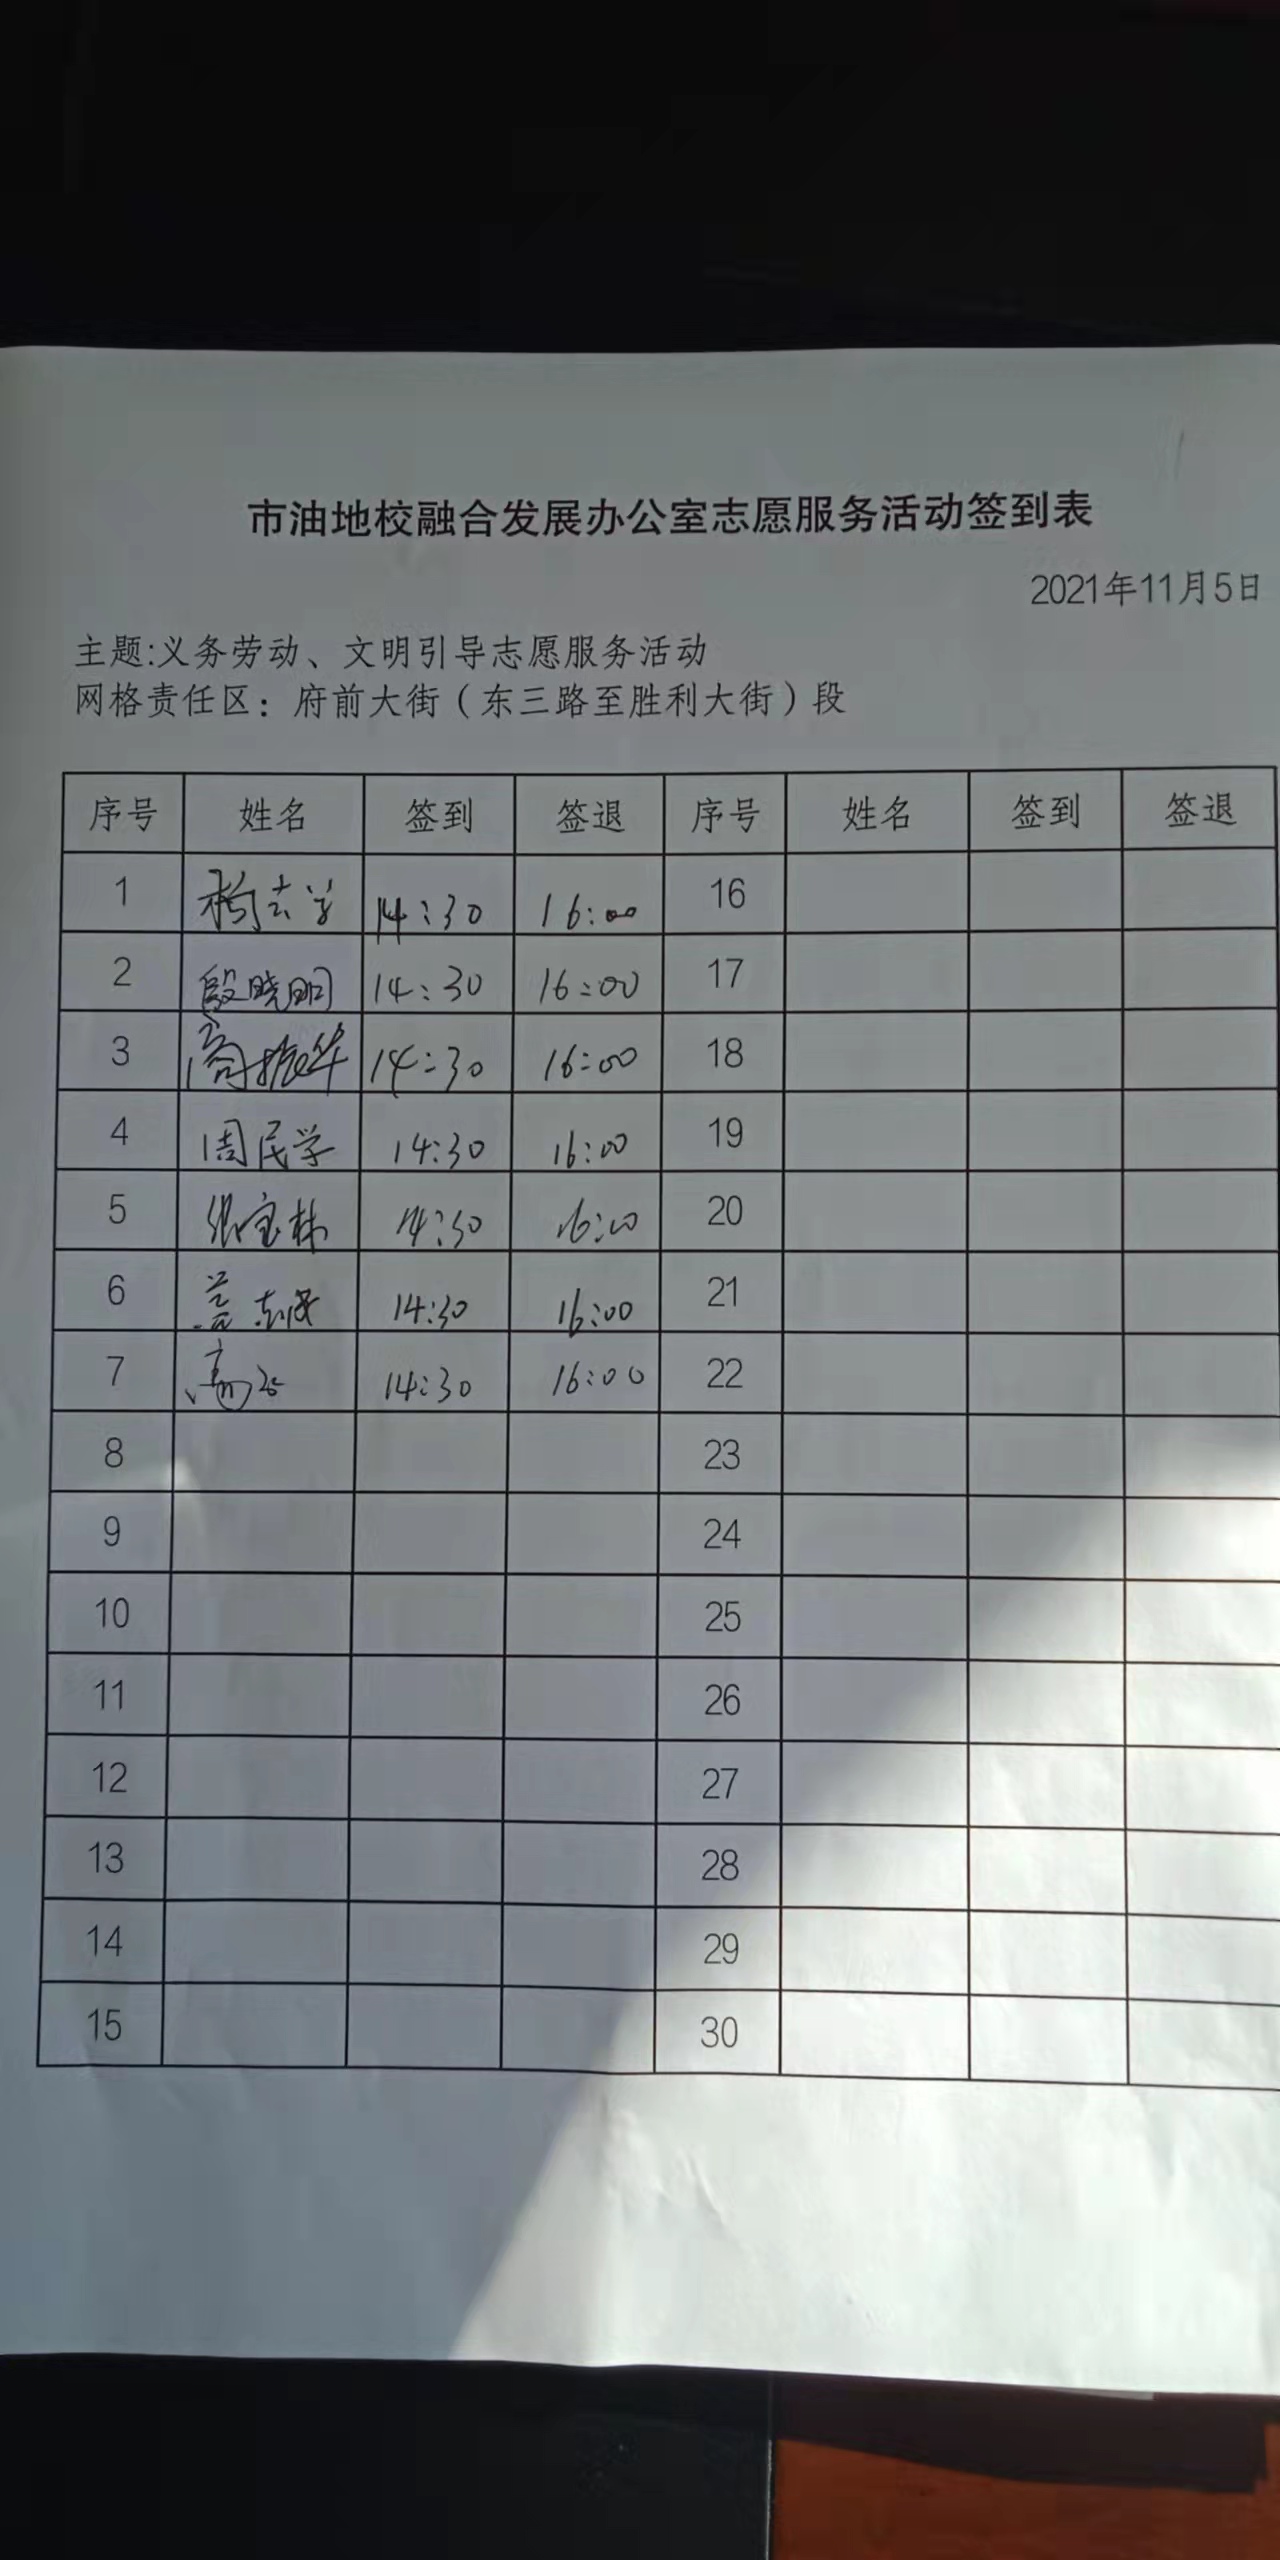 市油地校融合发展办公室志愿服务活动签到表
2021年11月5日
主题:义务劳动、文明引导志愿服务活动
网格责任区：府前大街（东三路至胜利大街）段
序号 姓名 签到 签退 序号 姓名 签到 签退
1 14:30 16:00 16
2 殷晓明 14:30 16:00 17
3 商振华 14:30 16:00 18
4 周民学 14:30 16:00 19
5 张宝林 14:30 16:00 20
6 盖志成 14:30 16:00 21
7 14:30 16:00 22
8 23
9 24
10 25
11 26
12 27
13 28
14 29
15 30